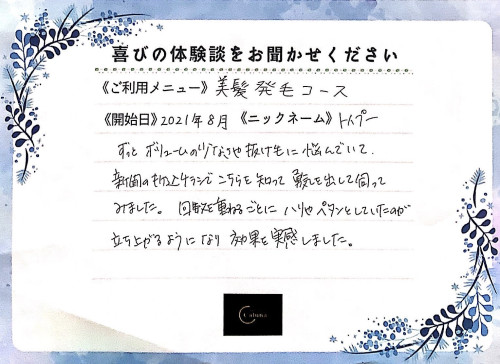 喜びの体験談をお聞かせください
《ご利用メニュー》美髪発毛コース
《開始日》2021年8月《ニックネーム》トイプー
ずっとボリュームの少なさや抜け毛に悩んでいて、
新聞の折込チラシでこちらを知って勇気を出して伺って
みました。回数を重ねるごとにハリやペタンとしていたのが
立ち上がるようになり効果を実感しました。